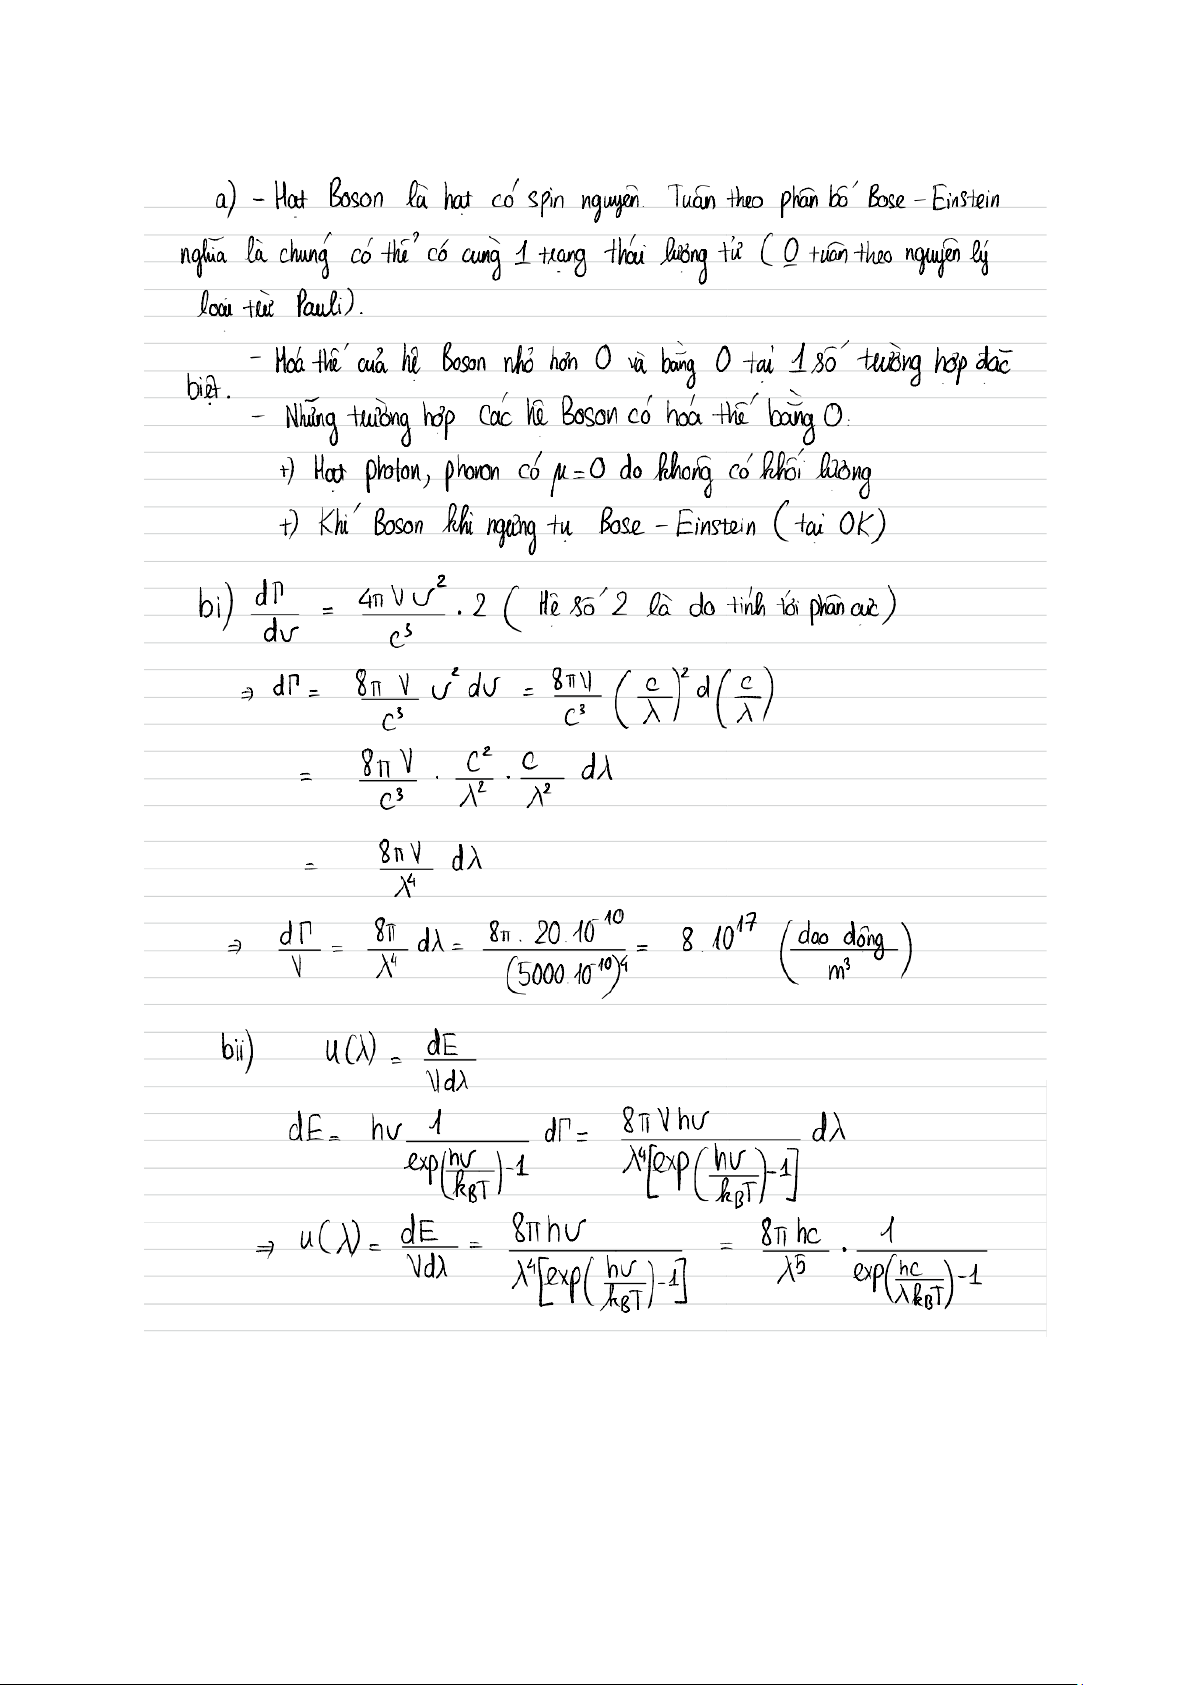 a) - Hạt Boson là hạt có spin nguyên. Tuân theo phân bố Bose - Einstein
nghĩa là chúng có thể có cùng 1 trạng thái lượng tử ( 0 tuân theo nguyên lý
loại trừ Pauli).
- Hoá thế của hệ Boson nhỏ hơn 0 và bằng 0 tại 1 số trường hợp đặc
biệt.
- Những trường hợp các hệ Boson có hoá thế bằng 0.
+) Hạt photon, phonon có μ = 0 do không có khối lượng
+) Khí Boson khi ngưng tụ Bose - Einstein ( tại 0K)
bi) dΓ/dν = 4πVν²/c³ . 2 ( Hệ số 2 là do tính tới phân cực )
⇒ dΓ = 8πV/c³ ν² dν = 8πV/c³ (c/λ)² d(c/λ)
= 8πV/c³ . c²/λ² . c/λ² dλ
= 8πV/λ⁴ dλ
⇒ dΓ/V = 8π/λ⁴ dλ = 8π . 20 . 10⁻¹⁰/(5000.10⁻¹⁰)⁴ = 8 . 10¹⁷ (dao động/m³)
bii) u(λ) = dE/Vdλ
dE = hν 1/exp(hν/k_BT)-1 dΓ = 8πVhν/λ⁴[exp(hν/k_BT)-1] dλ
⇒ u(λ) = dE/Vdλ = 8πhν/λ⁴[exp(hν/k_BT)-1] = 8πhc/λ⁵ . 1/exp(hc/λk_BT)-1